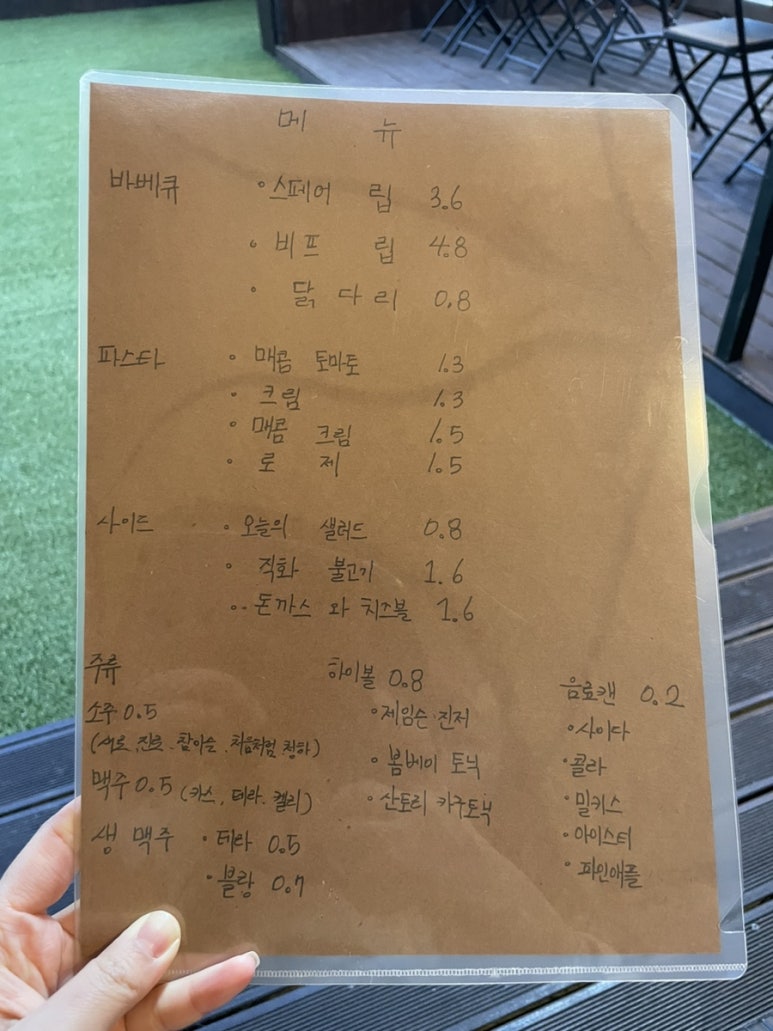 메 뉴
바베큐 ∘스페어 립 3.6
∘ 비프 립 4.8
∘ 닭 다 리 0.8
파스타 ∘ 매콤 토마토 1.3
∘ 크림 1.3
∘ 매콤 크림 1.5
∘ 로 제 1.5
사이드 ∘ 오늘의 샐러드 0.8
∘ 직화 불고기 1.6
∘∘ 돈까스 와 치즈볼 1.6
주류
소주 0.5
(새로, 진로, 참이슬, 처음처럼, 청하)
맥주 0.5 (카스, 테라, 켈리)
생 맥주 ∘ 테라 0.5
∘ 블랑 0.7
하이볼 0.8
∘ 제임슨 진저
∘ 봄베이 토닉
∘ 산토리 가쿠토닉
음료캔 0.2
∘ 사이다
∘ 콜라
∘ 밀키스
∘ 아이스티
∘ 파인애플